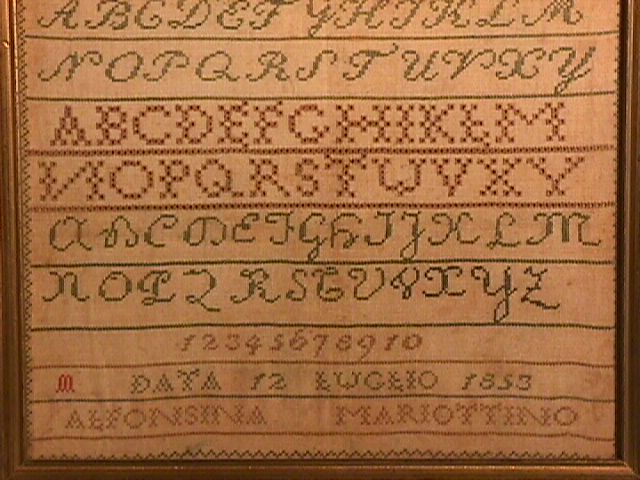 A B C D E F G H I K L M
N O P Q R S T U V X Y
A B C D E F G H I K L M
N O P Q R S T U V X Y
A B C D E F G H I J K L M
N O P Q R S T U V X Y Z
1 2 3 4 5 6 7 8 9 10
M DATA 12 LUGLIO 1853
ALFONSINA MARIOTTINO